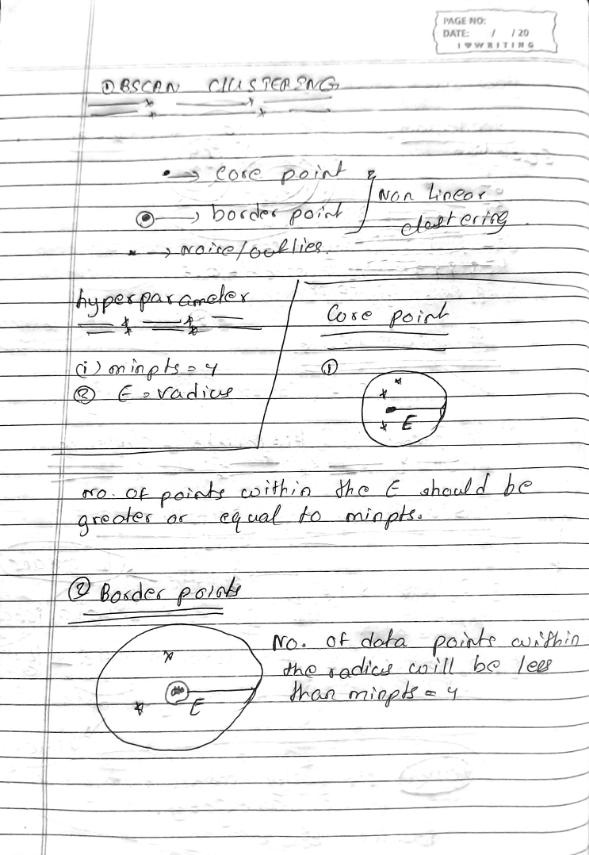 PAGE NO:
DATE: / /20
I ♥ WRITING
① DBSCAN CLUSTERING
• → core point
→ border point
Non Linear
clustering
→ noise/outlies
hyperparameter
(i) minpts = 4
② E = radius
Core point
①
E
no. of points within the E should be
greater or equal to minpts.
② Border points
E
No. of data points within
the radius will be less
than minpts = 4